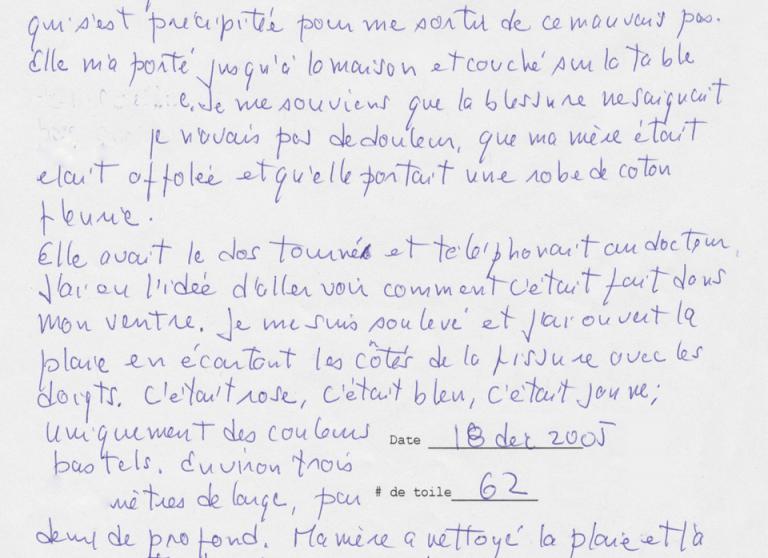 qui s'est précipitée pour me sortir de ce mauvais pas.
Elle m'a porté jusqu'à la maison et couché sur la table
e. Je me souviens que la blessure ne saignait
je n'avais pas de douleur, que ma mère était
etait affolée et qu'elle portait une robe de coton
fleurie.
Elle avait le dos tourné et téléphonait au docteur.
J'ai eu l'idée d'aller voir comment c'était fait dans
mon ventre. Je me suis soulevé et j'ai ouvert la
plaie en écartant les côtés de la fissure avec les
doigts. C'était rose, c'était bleu, c'était jaune;
uniquement des couleurs
pastels. Environ trois
mètres de large, par
Date 18 dec 2005
# de toile 62
demi de profond. Ma mère a nettoyé la plaie et l'a